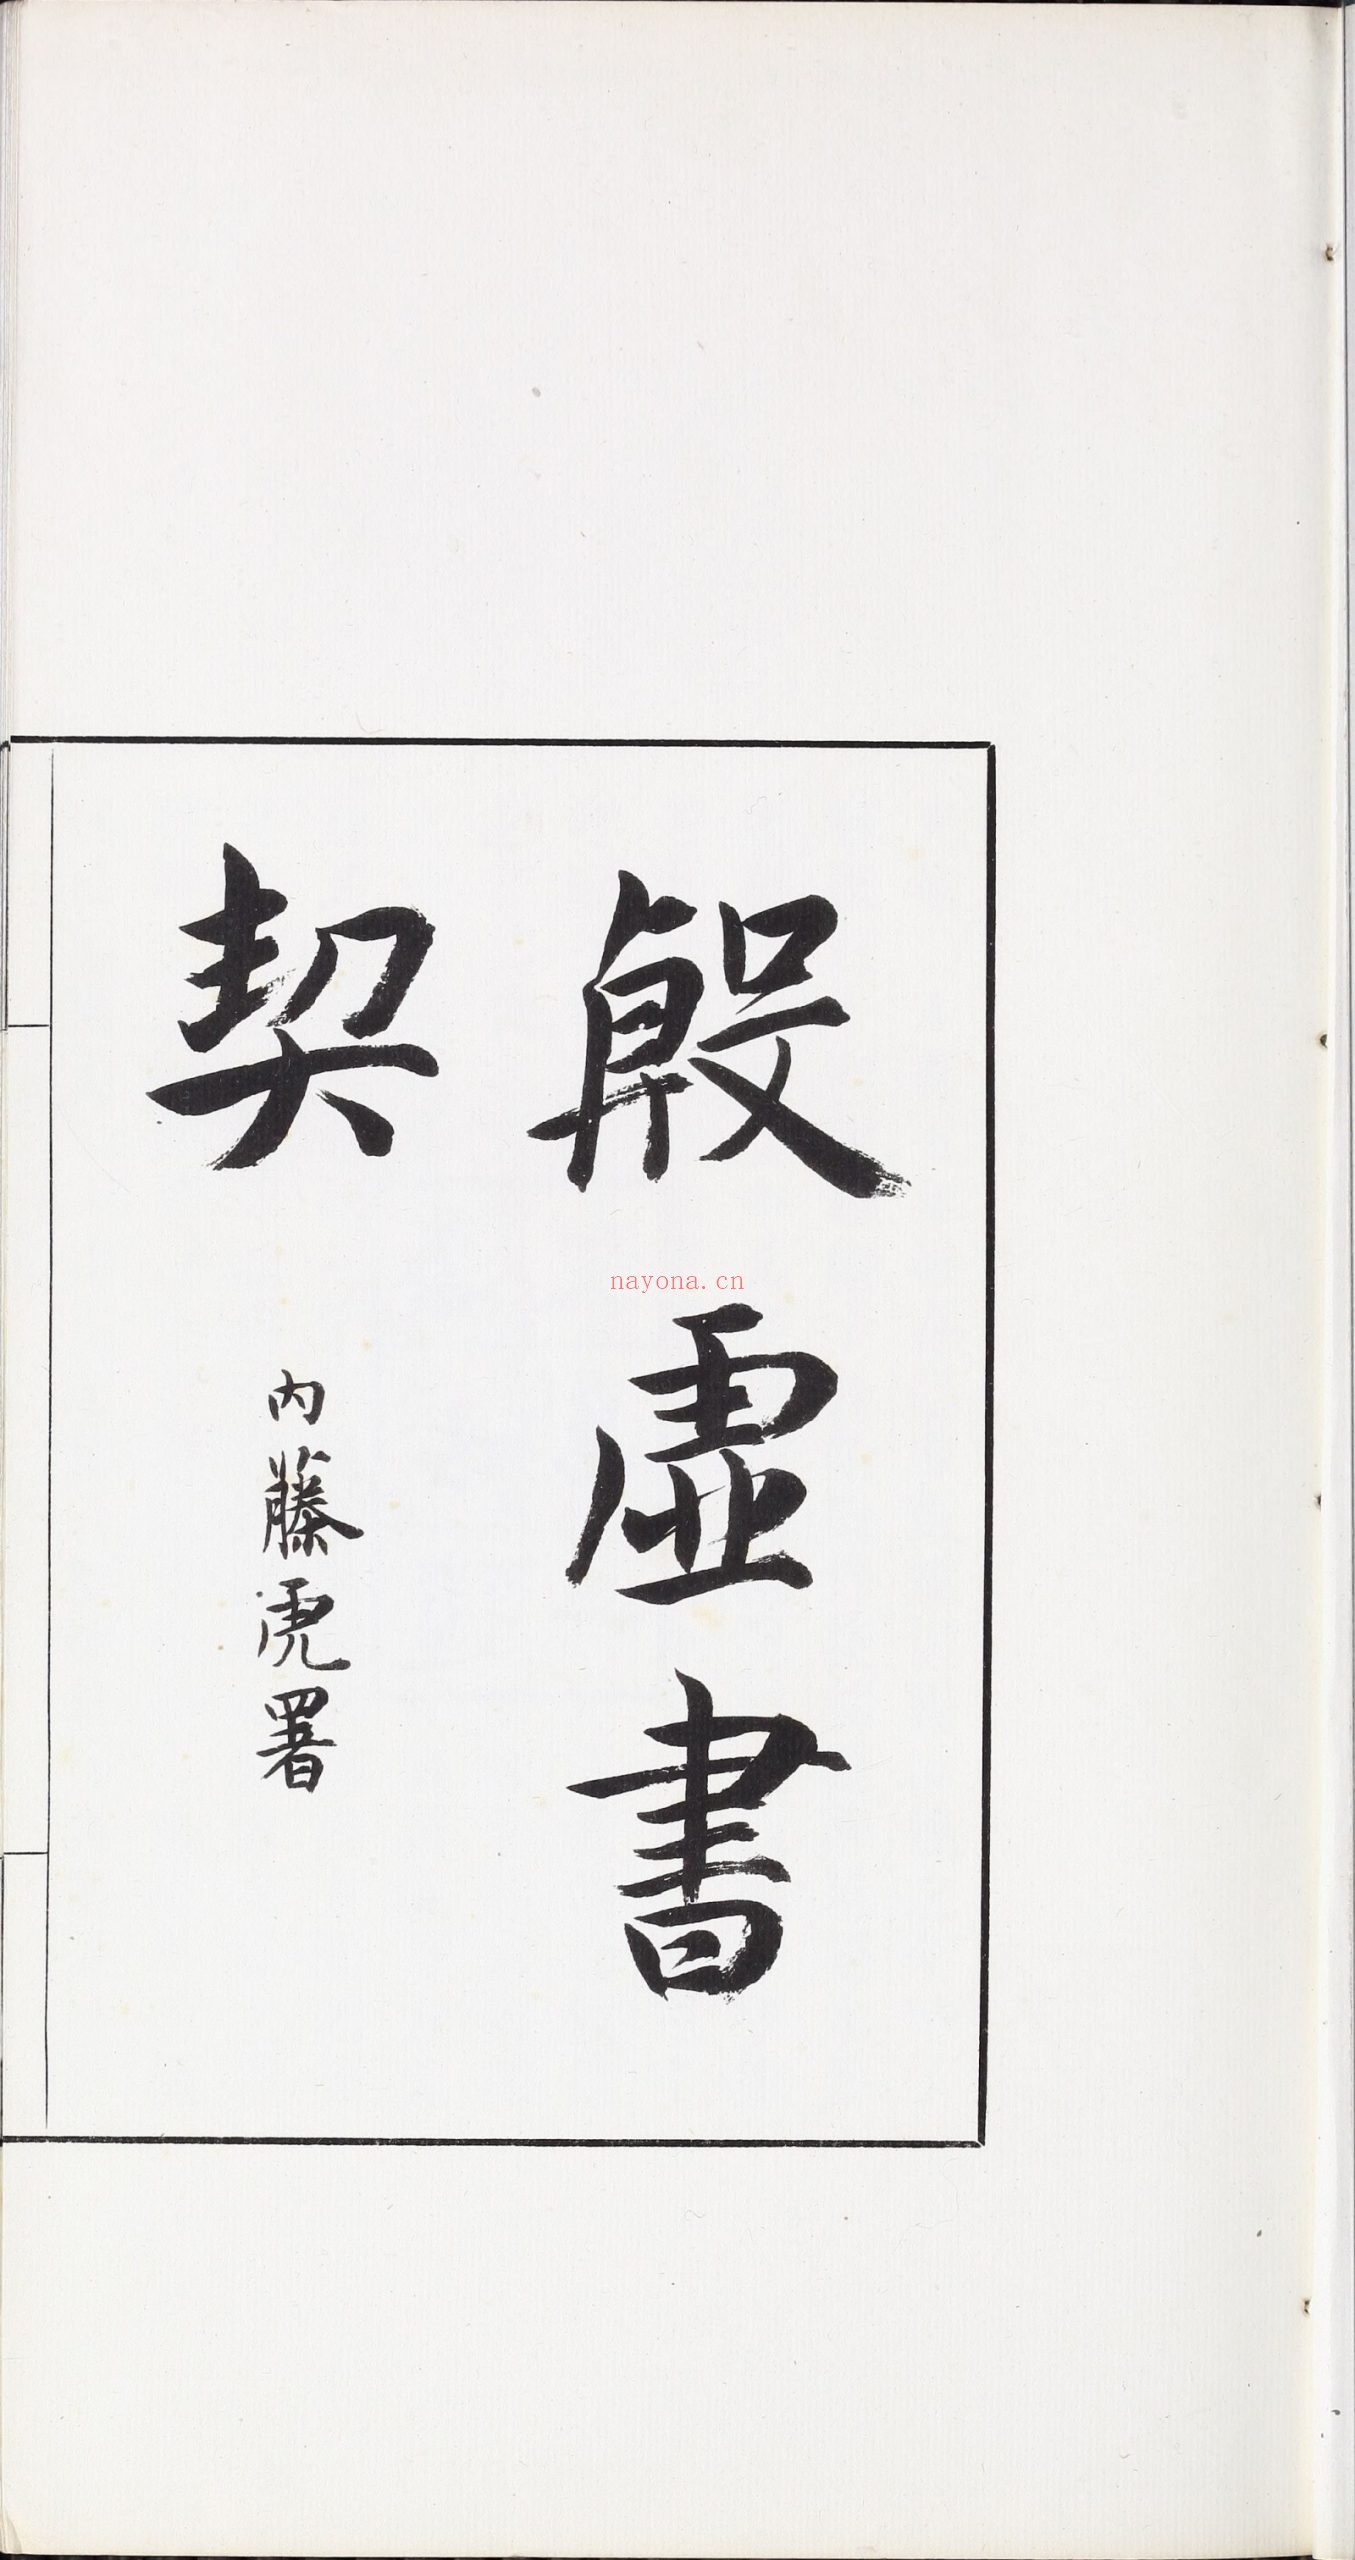 殷虛書
契
內藤虎署
nayona.cn